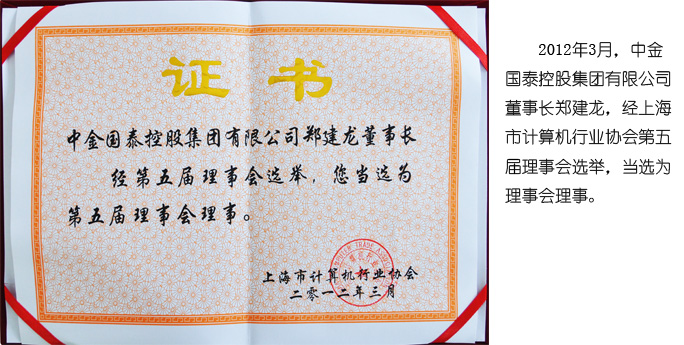 证书
中金国泰控股集团有限公司郑建龙董事长
经第五届理事会选举，您当选为
第五届理事会理事。
上海市计算机行业协会
二零一二年三月
2012年3月，中金
国泰控股集团有限公司
董事长郑建龙，经上海
市计算机行业协会第五
届理事会选举，当选为
理事会理事。